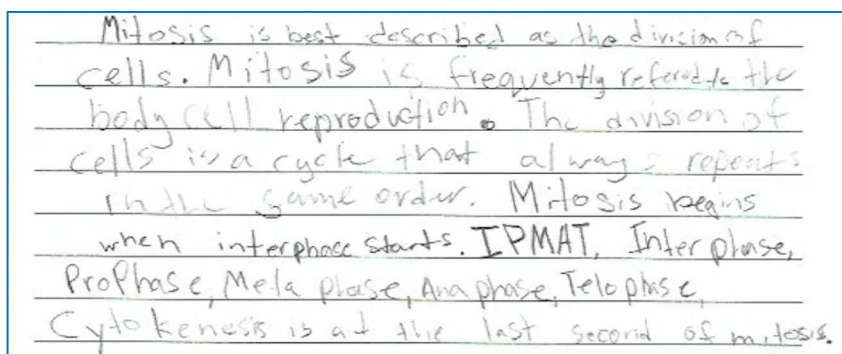 Mitosis is best described as the division of
cells. Mitosis is frequently refered to the
body cell reproduction. The division of
cells is a cycle that always repeats
in the same order. Mitosis begins
when interphase starts. IPMAT, Interphase,
ProPhase, Metaphase, Anaphase, Telophase,
Cytokenesis is at the last second of mitosis.